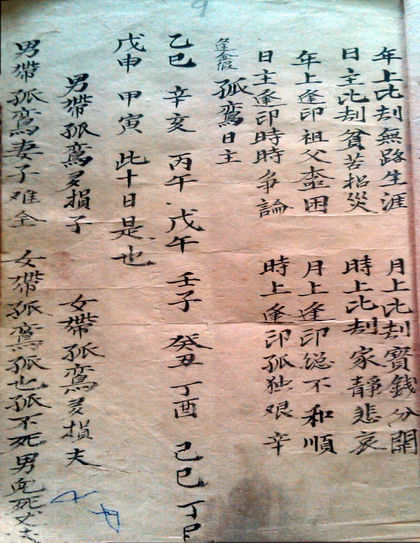 年上比刼無路生涯 月上比刼寳錢分開
日主比刼貧苦招災 時上比刼家靜悲哀
年上逢印祖父困 月上逢印総不和順
日主逢印時時爭論 時上逢印孤独艰辛
孤鸞日主
乙巳 辛亥 丙午 戊午 壬子 癸丑 丁酉 己巳 丁巳
戊申 甲寅 此十日是也
男帶孤鸞多損子 女帶孤鸞多損夫
男帶孤鸞妻子难全 女帶孤鸞孤也孤不死男死丈夫